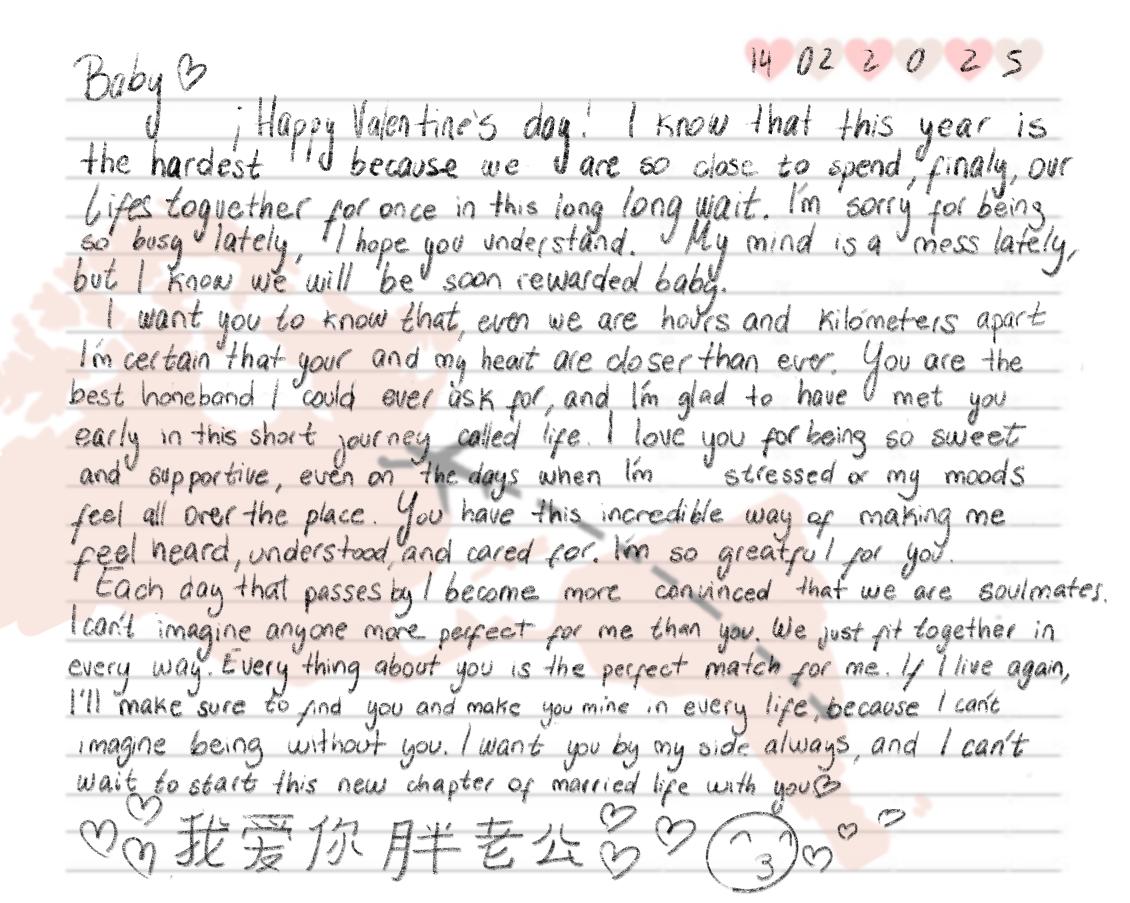 14 02 2 0 2 5
Baby ♡
¡Happy Valentine's day! I know that this year is
the hardest because we are so close to spend, finaly, our
lifes toguether for once in this long long wait. I'm sorry for being
so busy lately, I hope you understand. My mind is a mess lately,
but I know we will be soon rewarded baby.
I want you to know that, even we are hours and kilometers apart
I'm certain that your and my heart are closer than ever. You are the
best honeband I could ever ask for, and I'm glad to have met you
early in this short journey called life. I love you for being so sweet
and supportive, even on the days when I'm stressed or my moods
feel all over the place. You have this incredible way of making me
feel heard, understood, and cared for. I'm so greatful for you.
Each day that passes by I become more convinced that we are soulmates.
I can't imagine anyone more perfect for me than you. We just fit together in
every way. Every thing about you is the perfect match for me. If I live again,
I'll make sure to find you and make you mine in every life, because I can't
imagine being without you. I want you by my side always, and I can't
wait to start this new chapter of married life with you♡
我爱你胖老公